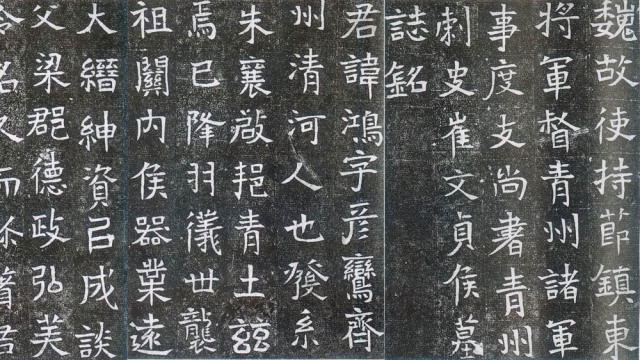 魏故使持節鎮東
将軍督青州諸軍
事度支尚書青州
刺史崔文貞侯墓
誌銘
君諱鴻字彦鸞齊
州清河人也發系
朱襄啟挹青土玆
焉已降羽儀世襲
祖關内侯器業遠
大縉紳資以成談
父梁郡德政弘美
名久而弥著君